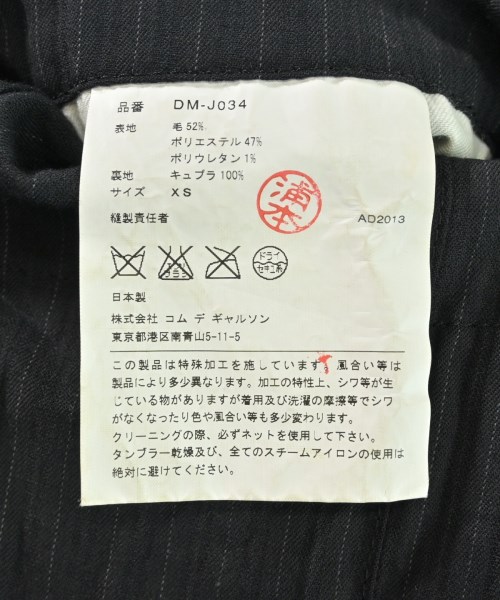 品番 DM-J034
表地 毛 52%
ポリエステル 47%
ポリウレタン 1%
裏地 キュプラ 100%
サイズ XS
縫製責任者 AD2013
ドライ
セキユ系
日本製
株式会社 コム デ ギャルソン
東京都港区南青山5-11-5
この製品は特殊加工を施しています。風合い等は
製品により多少異なります。加工の特性上、シワ等が生
じている物がありますが着用及び洗濯の摩擦等でシワ
がなくなったり色や風合い等も多少変わります。
クリーニングの際、必ずネットを使用して下さい。
タンブラー乾燥及び、全てのスチームアイロンの使用は
絶対に避けてください。